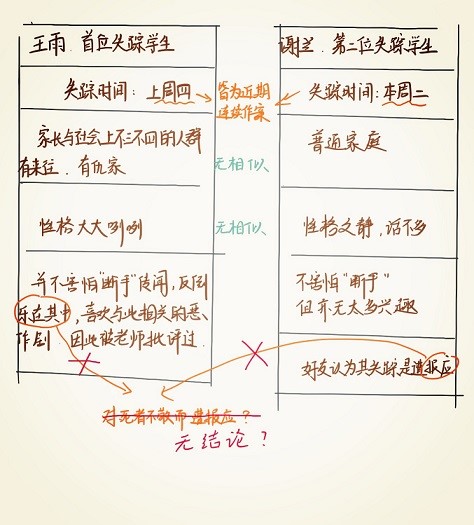 王雨．首位失踪学生
失踪时间：上周四
家长与社会上不三不四的人群
有来往．有仇家
性格大大咧咧
并不害怕“断手”传闻，反倒
乐在其中，喜欢与此相关的恶
作剧．因此被老师批评过．
皆为近期
连续作案
无相似
无相似
谢兰．第二位失踪学生
失踪时间：本周二
普通家庭
性格文静，话不多
不害怕“断手”
但亦无太多兴趣
好友认为其失踪是遭报应
对死者不敬而遭报应？
无结论？